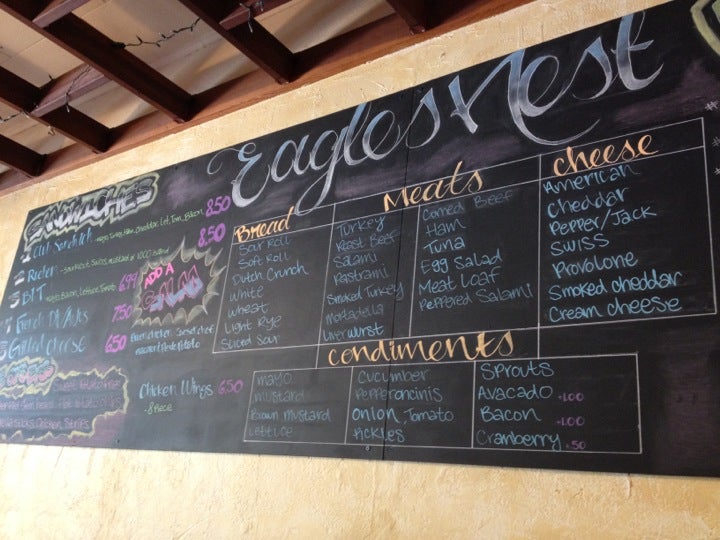 Eagles Nest
SANDWICHES
Club Sandwich - Mayo, Turkey, Ham, Cheddar, Let, Tom, Bacon 8.50
Rueben 8.50
BLT - Mayo, Bacon, Lettuce, Tomato 6.99
French Dip/AuJus 7.50
Grilled Cheese 6.50
ADD A
SALAD
Chicken Wings 6.50
- 8 Piece
Bread
Sour Roll
Soft Roll
Dutch Crunch
White
Wheat
Light Rye
Sliced Sour
Meats
Turkey
Roast Beef
Salami
Pastrami
Smoked Turkey
Mortadella
Liverwurst
Corned Beef
Ham
Tuna
Egg Salad
Meat Loaf
Peppered Salami
cheese
American
Cheddar
Pepper/Jack
Swiss
Provolone
Smoked cheddar
Cream cheese
condiments
Mayo
Mustard
Brown Mustard
Lettuce
Cucumber
Pepperoncinis
Onion, Tomato
Pickles
Sprouts
Avacado +1.00
Bacon +1.00
Cranberry +.50